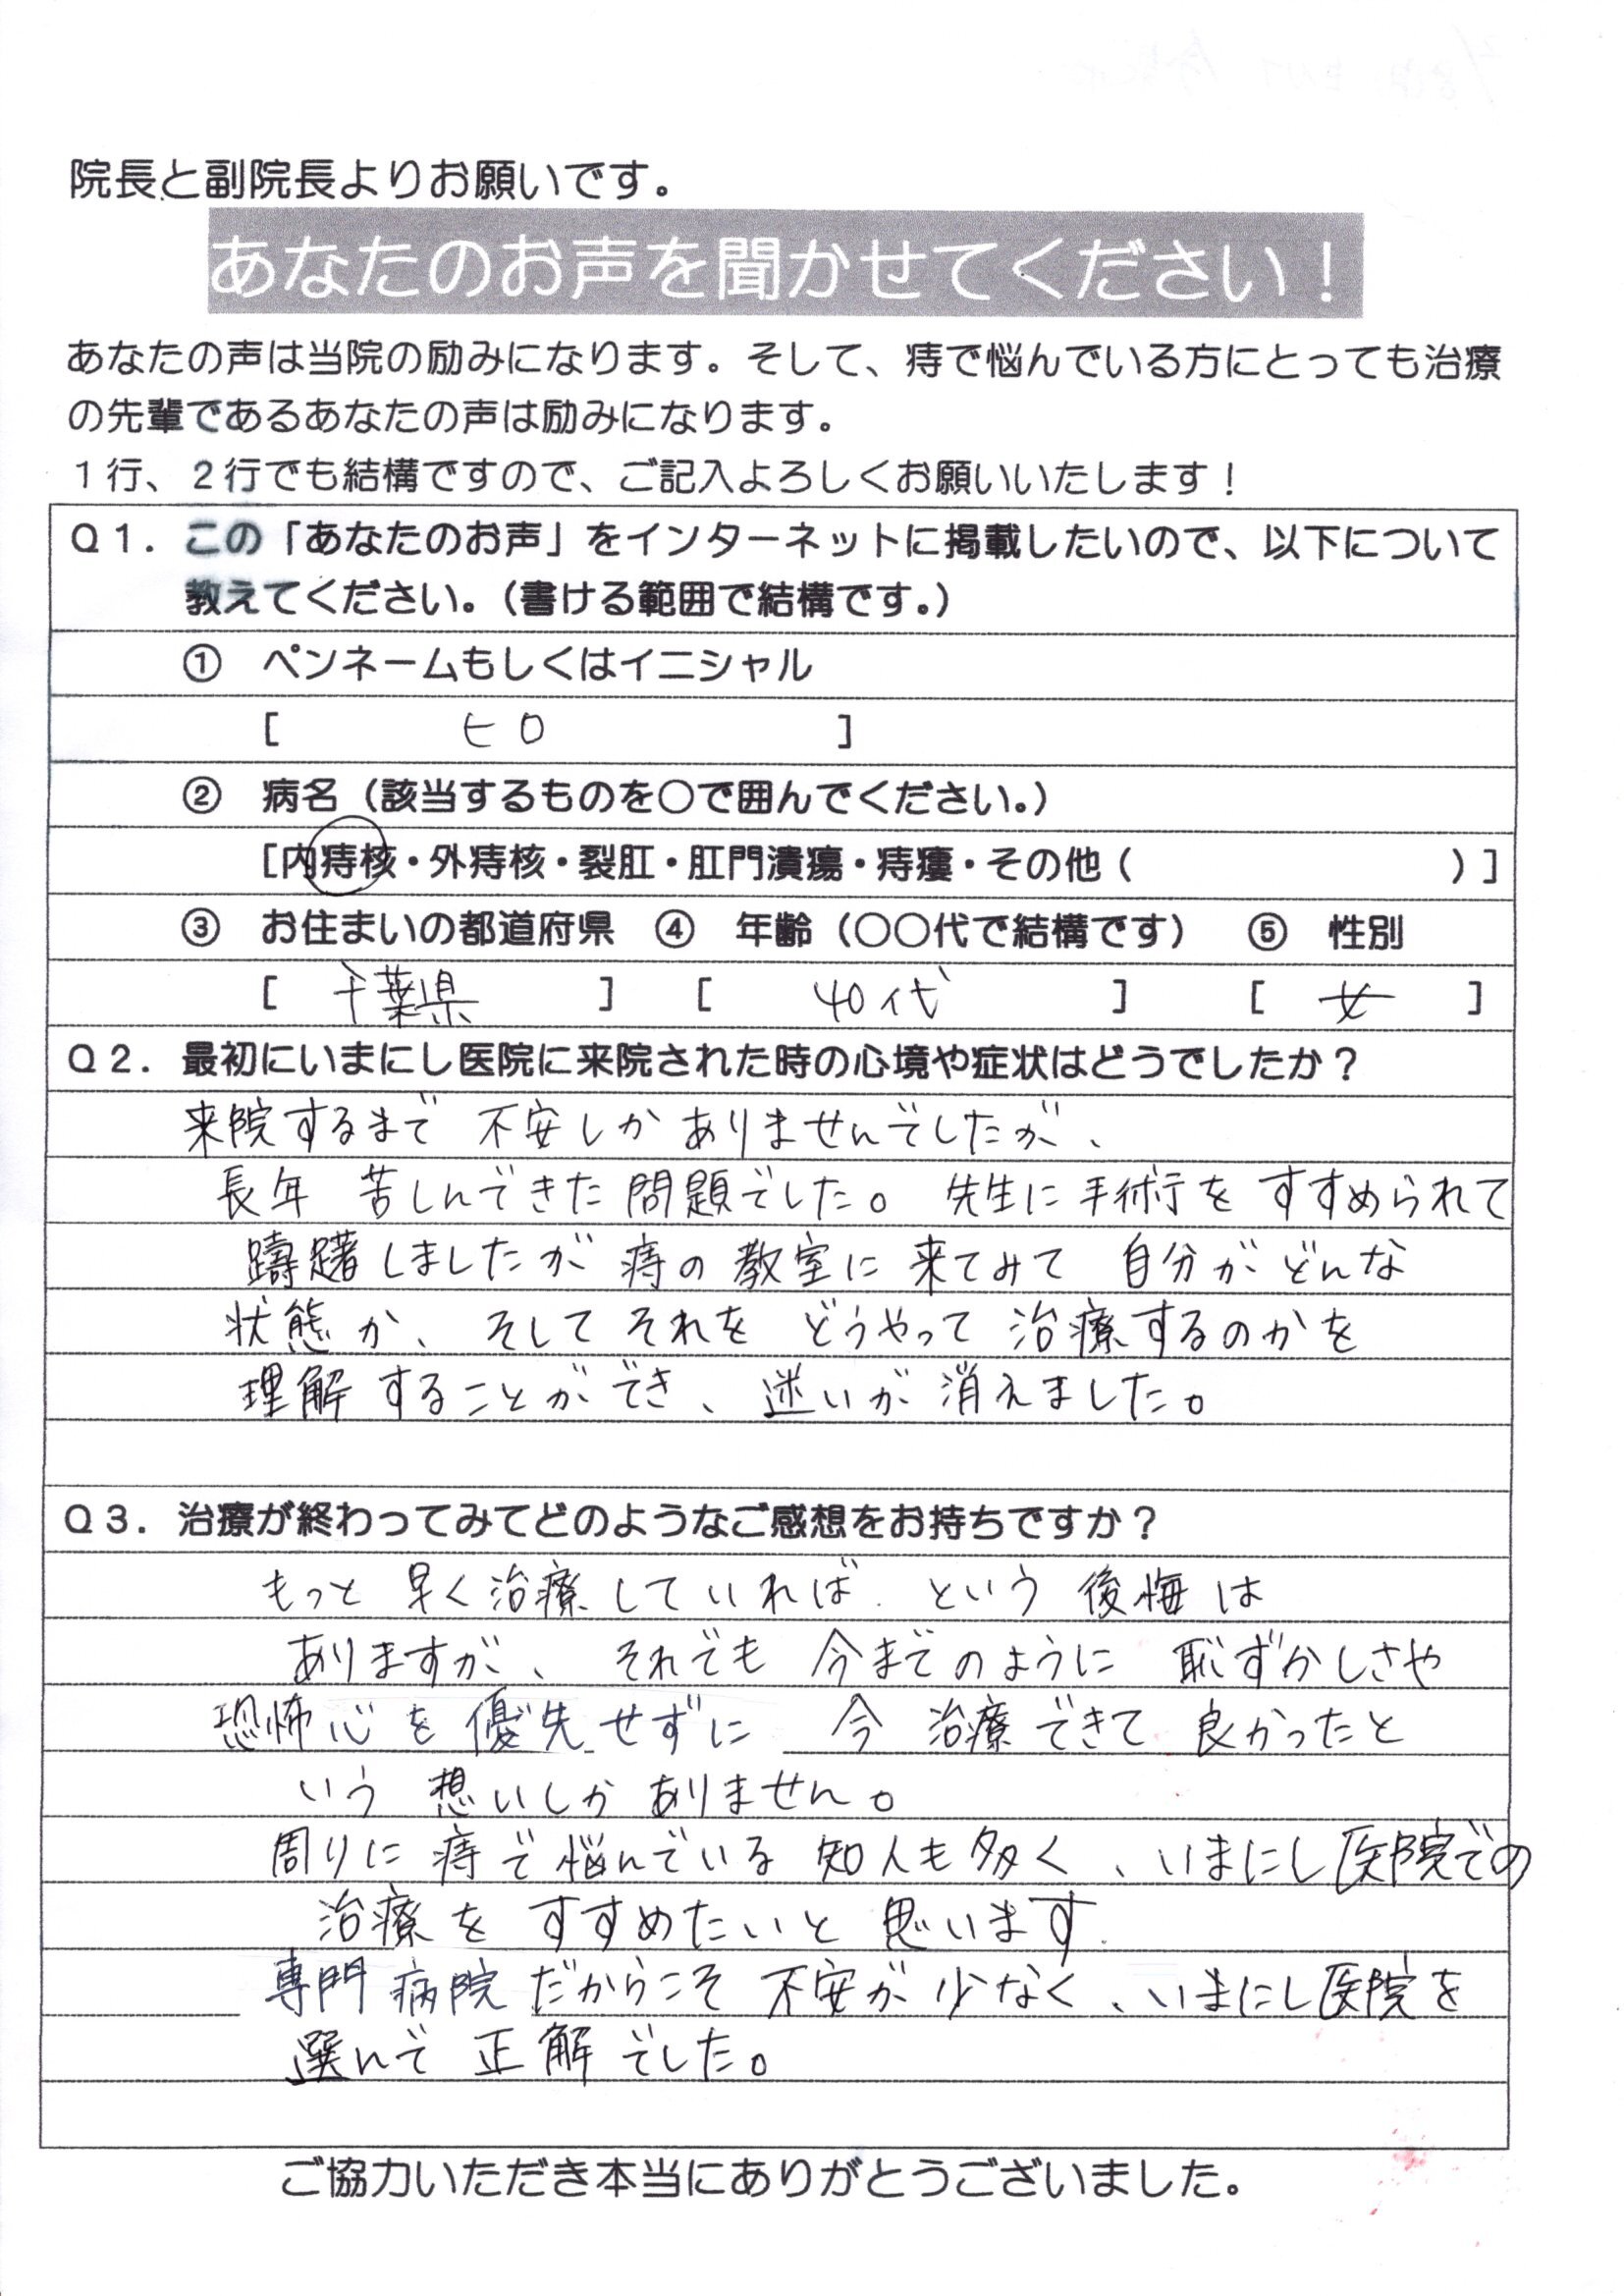 院長と副院長よりお願いです。
あなたのお声を聞かせてください！
あなたの声は当院の励みになります。そして、痔で悩んでいる方にとっても治療
の先輩であるあなたの声は励みになります。
１行、２行でも結構ですので、ご記入よろしくお願いいたします！
Ｑ１．この「あなたのお声」をインターネットに掲載したいので、以下について
教えてください。（書ける範囲で結構です。）
① ペンネームもしくはイニシャル
［ ヒロ ］
② 病名（該当するものを〇で囲んでください。）
［内痔核・外痔核・裂肛・肛門潰瘍・痔瘻・その他（ ）］
③ お住まいの都道府県 ④ 年齢（〇〇代で結構です） ⑤ 性別
［ 千葉県 ］ ［ 40代 ］ ［ 女 ］
Ｑ２．最初にいまにし医院に来院された時の心境や症状はどうでしたか？
来院するまで 不安しか ありませんでしたが、
長年 苦しんできた問題でした。先生に手術をすすめられて
躊躇しましたが 痔の教室に来てみて 自分がどんな
状態か、そしてそれを どうやって治療するのかを
理解することができ、迷いが消えました。
Ｑ３．治療が終わってみてどのようなご感想をお持ちですか？
もっと早く治療していれば という後悔は
ありますが、それでも今までのように 恥ずかしさや
恐怖心を優先せずに 今 治療できて良かったと
いう想いしかありません。
周りに痔で悩んでいる知人も多く、いまにし医院での
治療をすすめたいと思います
専門病院だからこそ不安が少なく、いまにし医院を
選んで正解でした。
ご協力いただき本当にありがとうございました。